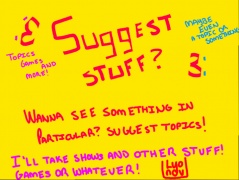 SUGGEST
STUFF?
TOPICS
GAMES
AND
MORE!
MAYBE
EVEN
A TOPIC OR
SOMETHING
WANNA SEE SOMETHING IN
PARTICULAR? SUGGEST TOPICS!
I'LL TAKE SHOWS AND OTHER STUFF!
GAMES OR WHATEVER!